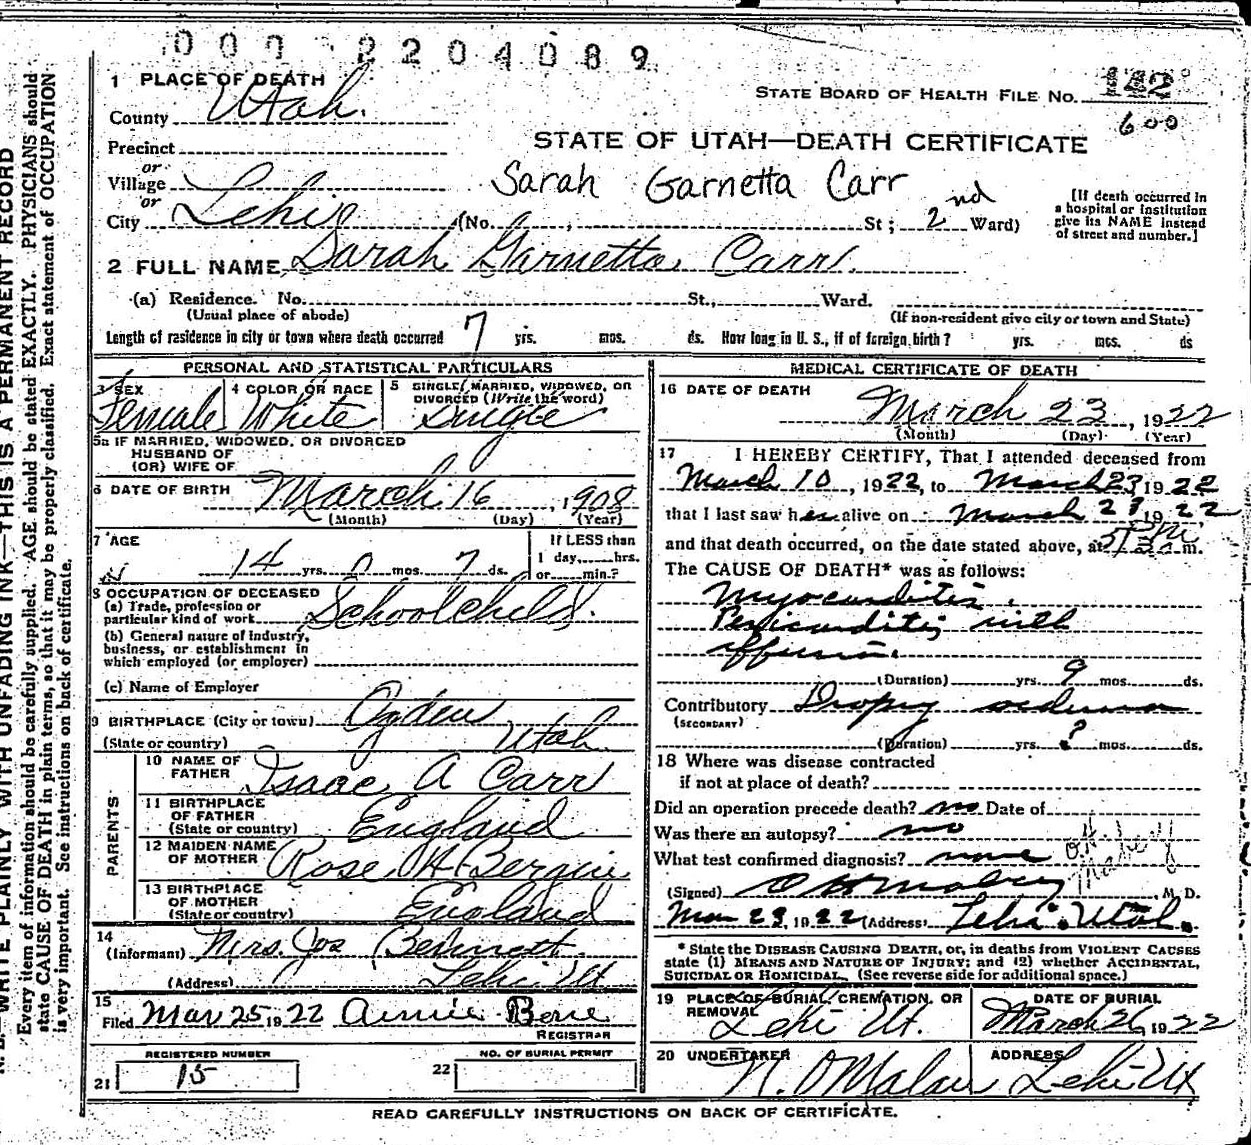 000 2204089
1 PLACE OF DEATH
STATE BOARD OF HEALTH FILE NO. 142
County Utah.
600
Precinct
STATE OF UTAH—DEATH CERTIFICATE
or
Village
Sarah Garnetta Carr
or
City Lehi (No. , St; 2nd Ward)
[If death occurred in
a hospital or institution
give its NAME instead
of street and number.]
2 FULL NAME Sarah Garnetta Carr.
(a) Residence. No. St., Ward.
(Usual place of abode) (If non-resident give city or town and State)
Length of residence in city or town where death occurred 7 yrs. mos. ds. How long in U. S., if of foreign birth? yrs. mos. ds
PERSONAL AND STATISTICAL PARTICULARS
3 SEX Female
4 COLOR OR RACE White
5 SINGLE, MARRIED, WIDOWED, OR
DIVORCED (Write the word)
Single
5a IF MARRIED, WIDOWED, OR DIVORCED
HUSBAND OF
(OR) WIFE OF
6 DATE OF BIRTH March 16, 1908
(Month) (Day) (Year)
7 AGE
14 yrs. 0 mos. 7 ds.
If LESS than
1 day, hrs.
or min.?
8 OCCUPATION OF DECEASED
(a) Trade, profession or
particular kind of work School child.
(b) General nature of industry,
business, or establishment in
which employed (or employer)
(c) Name of Employer
9 BIRTHPLACE (City or town) Ogden
(State or country) Utah
PARENTS
10 NAME OF
FATHER Isaac A Carr
11 BIRTHPLACE
OF FATHER
(State or country) England
12 MAIDEN NAME
OF MOTHER Rose H
13 BIRTHPLACE
OF MOTHER
(State or country) England
14
(Informant) Mrs. Jos Bennett
(Address) Lehi Ut
15
Filed Mar 25 1922 Annie
REGISTRAR
REGISTERED NUMBER
21 15
NO. OF BURIAL PERMIT
22
MEDICAL CERTIFICATE OF DEATH
16 DATE OF DEATH
March 23, 1922
(Month) (Day) (Year)
17 I HEREBY CERTIFY, That I attended deceased from
March 10, 1922, to March 23 1922
that I last saw her alive on March 23 1922
and that death occurred, on the date stated above, at m.
The CAUSE OF DEATH* was as follows:
Myocarditis.
Pericarditis with
effusion.
(Duration) yrs. 9 mos. ds.
Contributory Dropsy oedema
(SECONDARY)
(Duration) yrs. ? mos. ds.
18 Where was disease contracted
if not at place of death?
Did an operation precede death? no Date of
Was there an autopsy? no
What test confirmed diagnosis? none
(Signed) M. D.
Mar 23, 1922 (Address) Lehi. Utah.
* State the DISEASE CAUSING DEATH, or, in deaths from VIOLENT CAUSES
state (1) MEANS AND NATURE OF INJURY; and (2) whether ACCIDENTAL,
SUICIDAL OR HOMICIDAL. (See reverse side for additional space.)
19 PLACE OF BURIAL, CREMATION, OR
REMOVAL
Lehi Ut.
DATE OF BURIAL
March 26, 1922
20 UNDERTAKER
ADDRESS
Lehi Ut
READ CAREFULLY INSTRUCTIONS ON BACK OF CERTIFICATE.
WRITE PLAINLY WITH UNFADING INK—THIS IS A PERMANENT RECORD
Every item of information should be carefully supplied. AGE should be stated EXACTLY. PHYSICIANS should
state CAUSE OF DEATH in plain terms, so that it may be properly classified. Exact statement of OCCUPATION
is very important. See instructions on back of certificate.